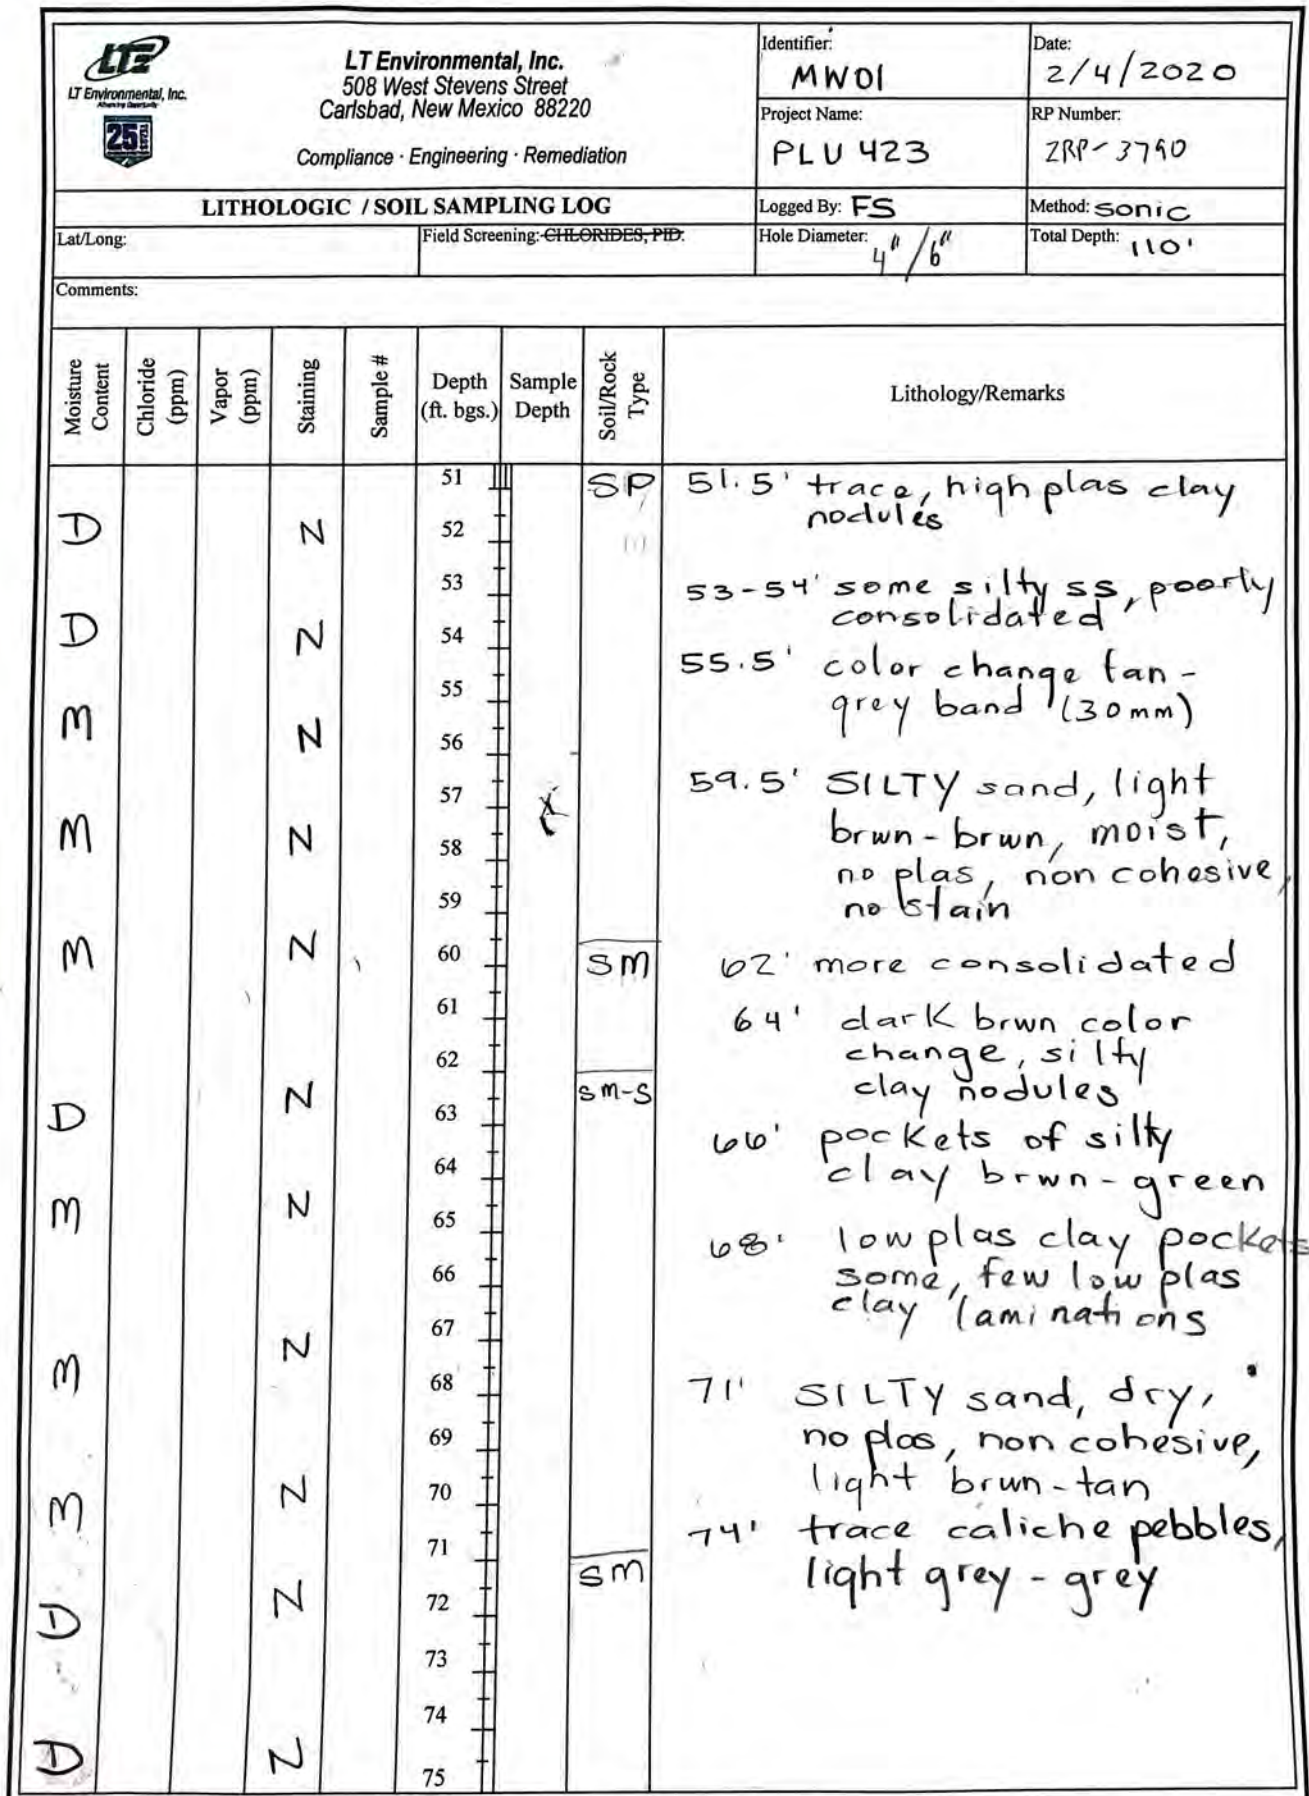 LTE
LT Environmental, Inc.
Advancing Opportunity
25 YEARS
LT Environmental, Inc.
508 West Stevens Street
Carlsbad, New Mexico 88220
Compliance · Engineering · Remediation
Identifier:
MW01
Date:
2/4/2020
Project Name:
PLU 423
RP Number:
2RP-3790
LITHOLOGIC / SOIL SAMPLING LOG
Logged By: FS
Method: Sonic
Lat/Long:
Field Screening: CHLORIDES, PID.
Hole Diameter: 4"/6"
Total Depth: 110'
Comments:
Moisture Content
Chloride (ppm)
Vapor (ppm)
Staining
Sample #
Depth (ft. bgs.)
Sample Depth
Soil/Rock Type
Lithology/Remarks
51 SP 51.5' trace, high plas clay
nodules
D N 52
53 53-54' some silty ss, poorly
consolidated
D N 54
55 55.5' color change tan-
grey band (30mm)
M N 56
57 59.5' SILTY sand, light
brwn-brwn, moist,
M N 58
no plas, non cohesive,
59
no stain
M N 60 SM 62' more consolidated
61 64' dark brwn color
change, silty
62
clay nodules
D N 63 SM-S
66' pockets of silty
64
clay brwn-green
M N 65
68' low plas clay pockets
66
some, few low plas
clay laminations
M N 67
68 71' SILTY sand, dry,
69
no plas, non cohesive,
light brwn-tan
M N 70
74' trace caliche pebbles,
71
light grey - grey
SM
D N 72
73
74
D N 75